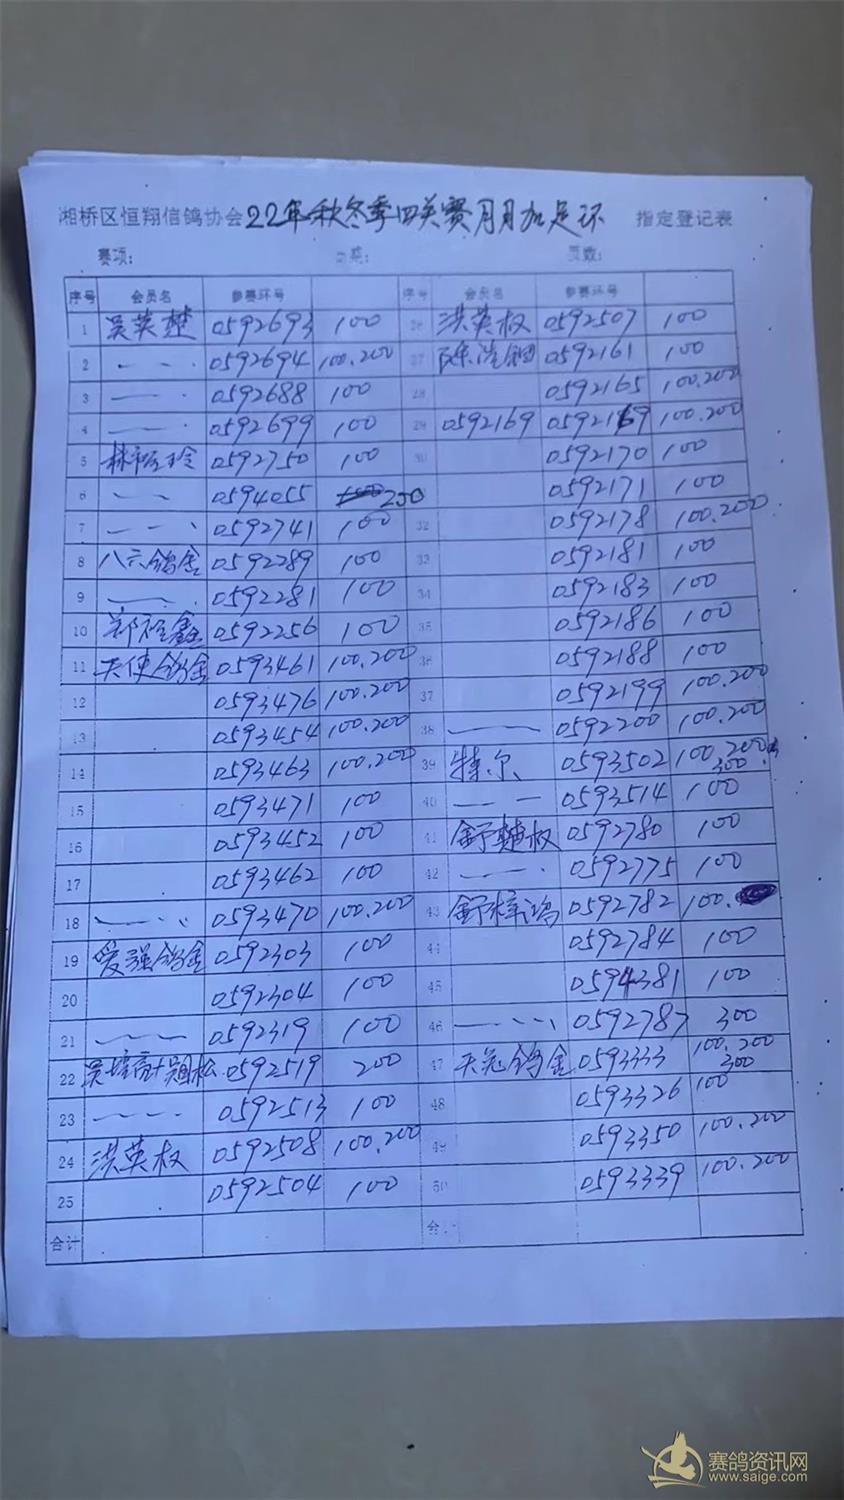 湘桥区恒翔信鸽协会22年秋冬季四关赛月月加足环 指定登记表
赛项: 日期: 页数:
序号 会员名 参赛环号 序号 会员名 参赛环号
1 吴英楚 0592693 100 26 洪英权 0592507 100
2 0592694 100.200 27 0592161 100
3 0592688 100 28 0592165 100.200
4 0592699 100 29 0592169 0592169 100.200
5 0592750 100 30 0592170 100
6 0594055 200 0592171 100
7 0592741 100 32 0592178 100.200
8 八六鸽舍 0592289 100 33 0592181 100
9 0592281 100 34 0592183 100
10 0592256 100 35 0592186 100
11 天使鸽舍 0593461 100.200 36 0592188 100
12 0593476 100.200 37 0592199 100.200
13 0593454 100.200 38 0592200 100.200
14 0593463 100.200 39 特尔 0593502 100.200.300
15 0593471 100 40 0593514 100
16 0593452 100 41 0592780 100
17 0593462 100 42 0592775 100
18 0593470 100.200 43 0592782 100.
19 爱强鸽舍 0592303 100 44 0592784 100
20 0592304 100 45 0594381 100
21 0592319 100 46 0592787 300
22 0592519 200 47 0593333 100.200 300
23 0592513 100 48 0593326 100
24 洪英权 0592508 100.200 49 0593350 100.200
25 0592504 100 50 0593339 100.200
合计 合计
赛鸽资讯网
www.saige.com